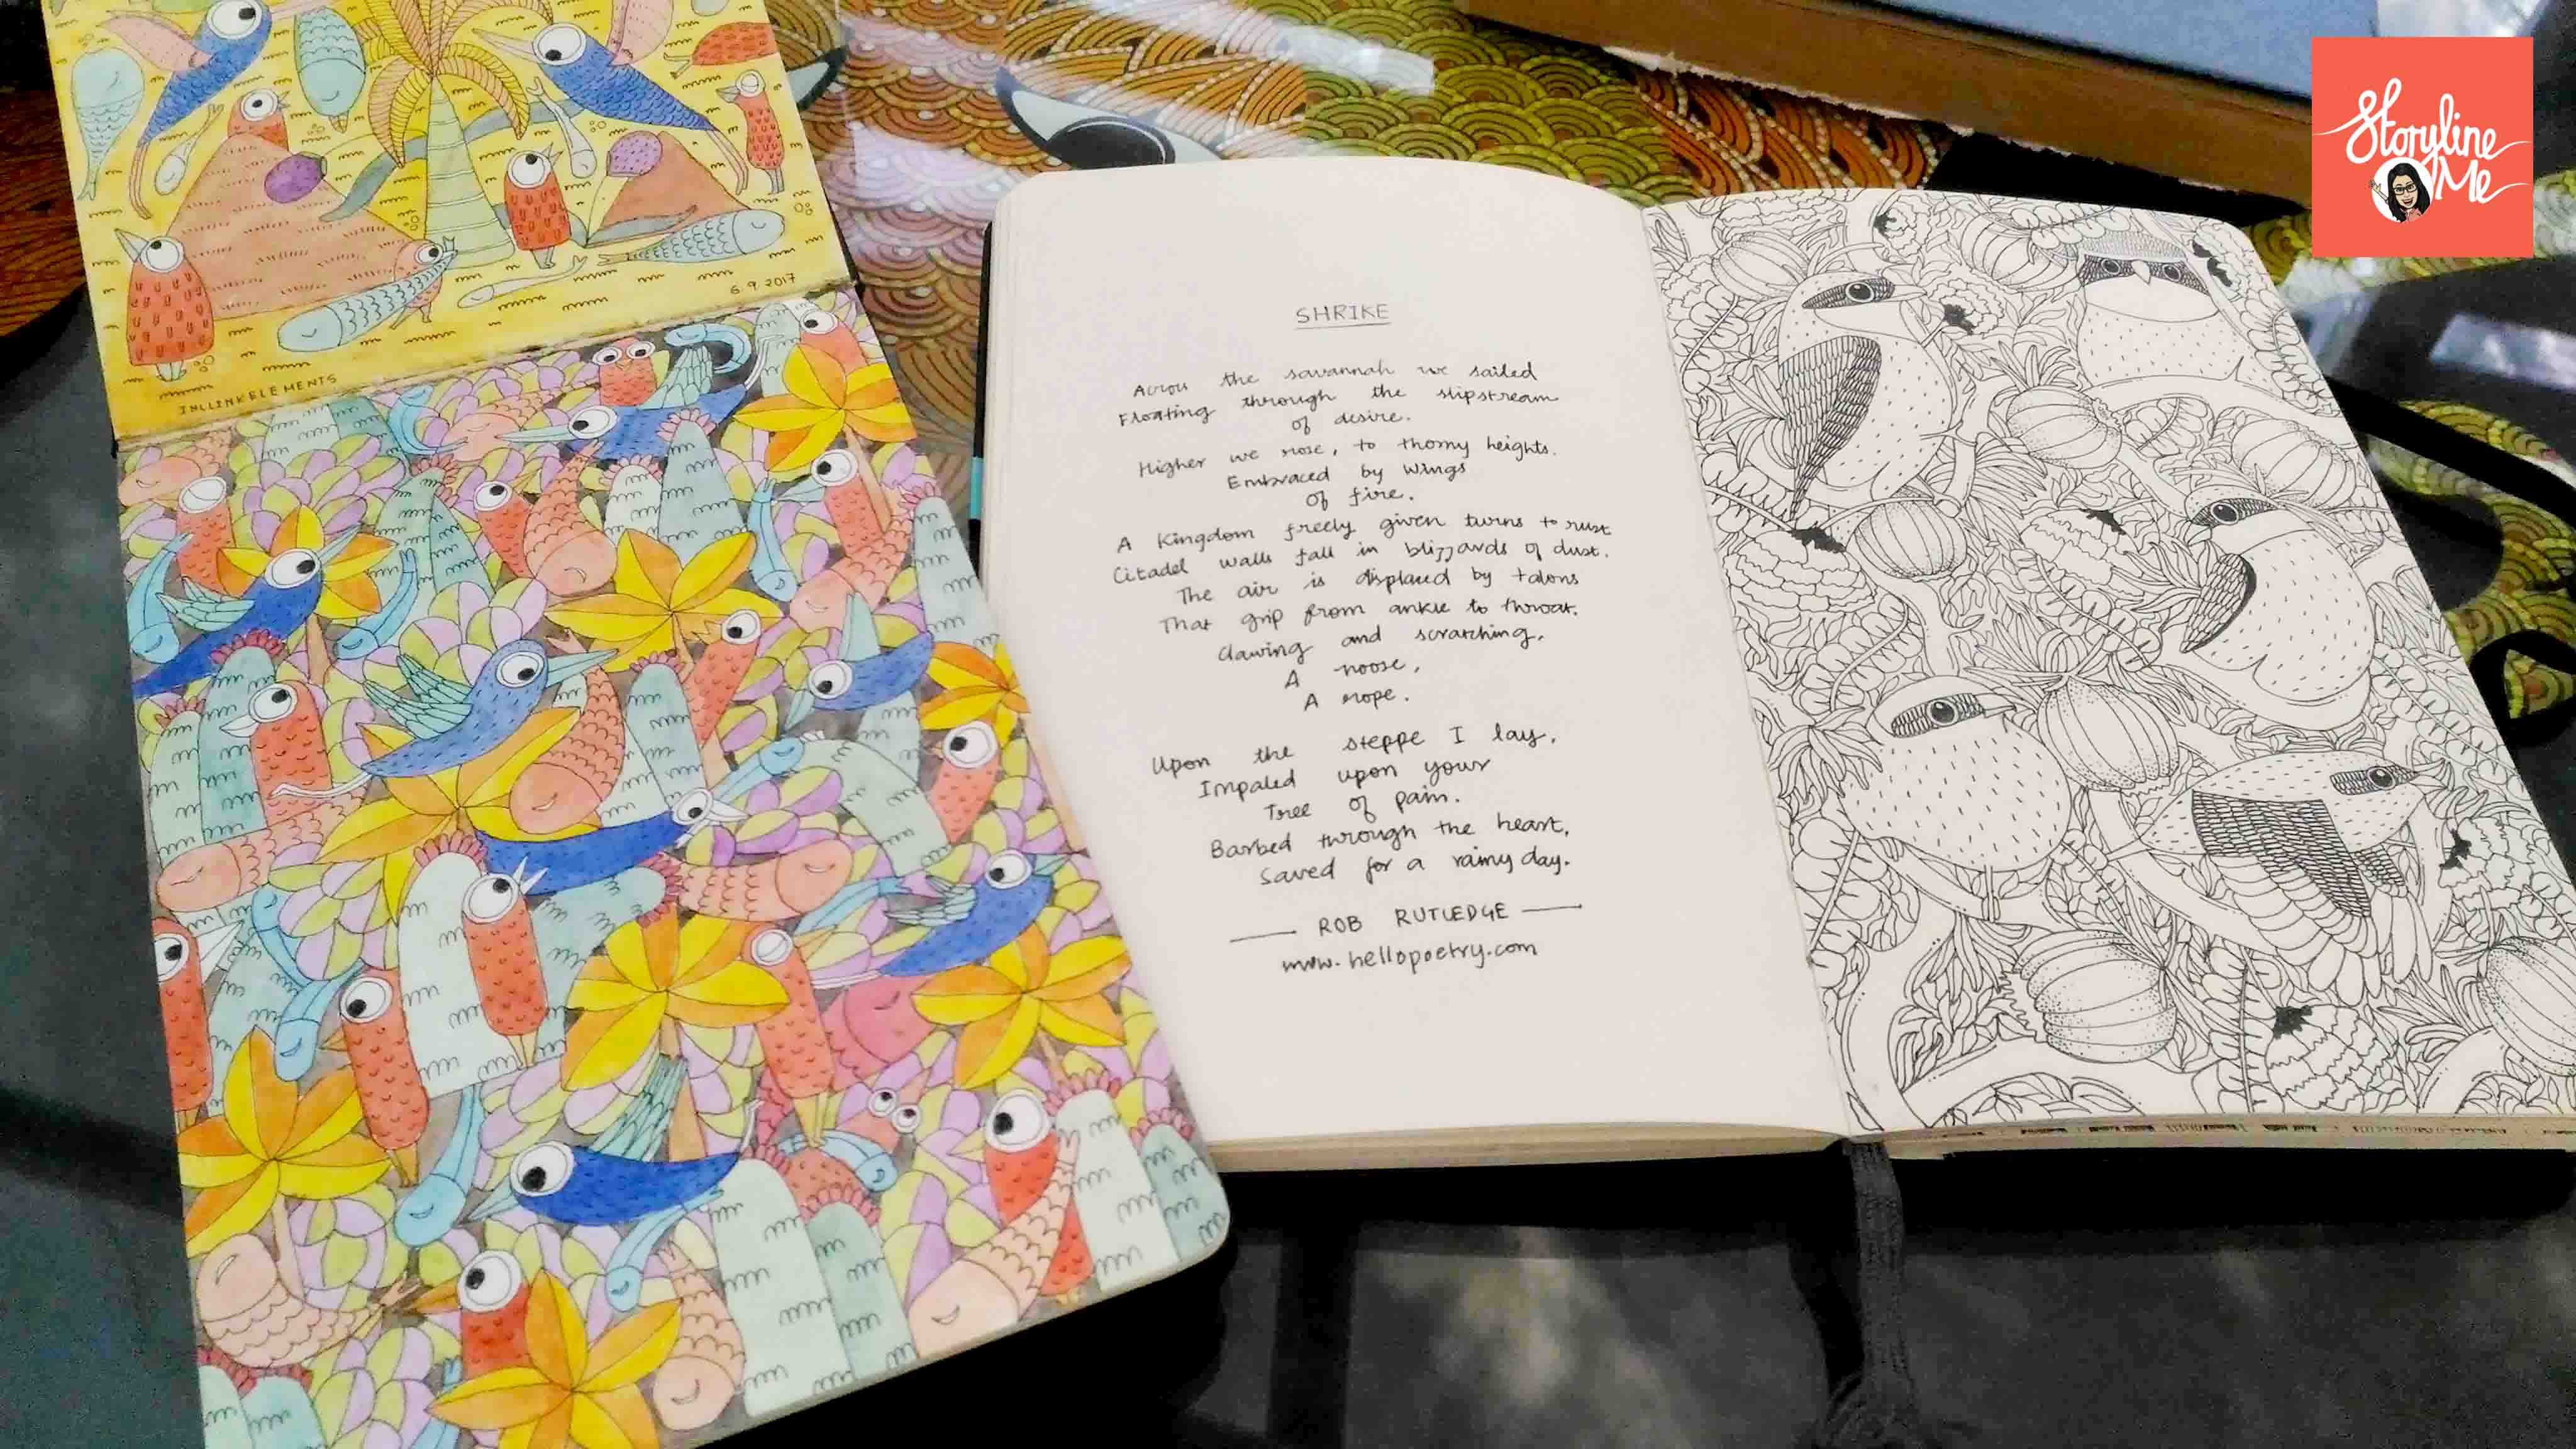 Storyline
Me
6.9.2017
INLLINKELEMENTS
SHRIKE
Across the savannah we sailed
Floating through the slipstream
of desire.
Higher we rose, to thorny heights.
Embraced by wings
of fire.
A Kingdom freely given turns to rust
Citadel walls fall in blizzards of dust.
The air is displaced by talons
That grip from ankle to throat.
Clawing and scratching.
A noose,
A rope.
Upon the steppe I lay,
Impaled upon your
Tree of pain.
Barbed through the heart,
Saved for a rainy day.
ROB RUTLEDGE
www.hellopoetry.com